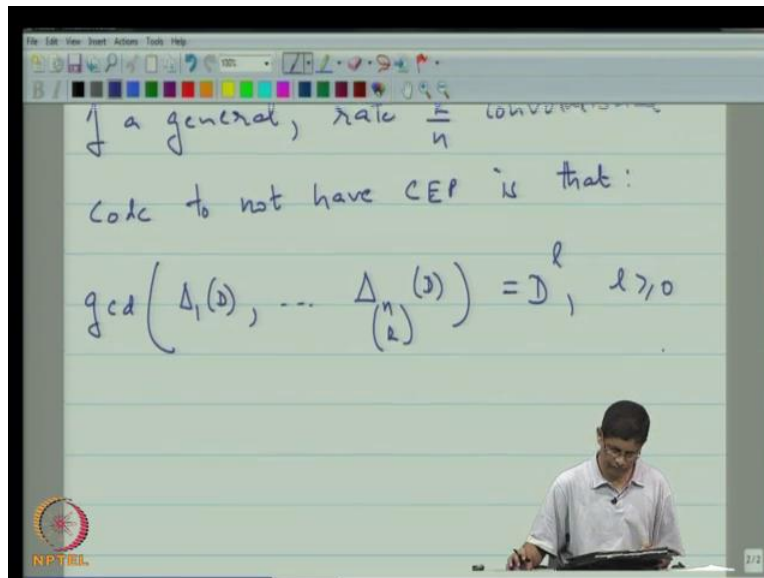 File Edit View Insert Actions Tools Help
100%
B I
a general, rate k/n
code to not have CEP is that:
gcd ( Δ₁(D), ... Δ_(n k) (D) ) = D^l, l ≥ 0
NPTEL
2/2